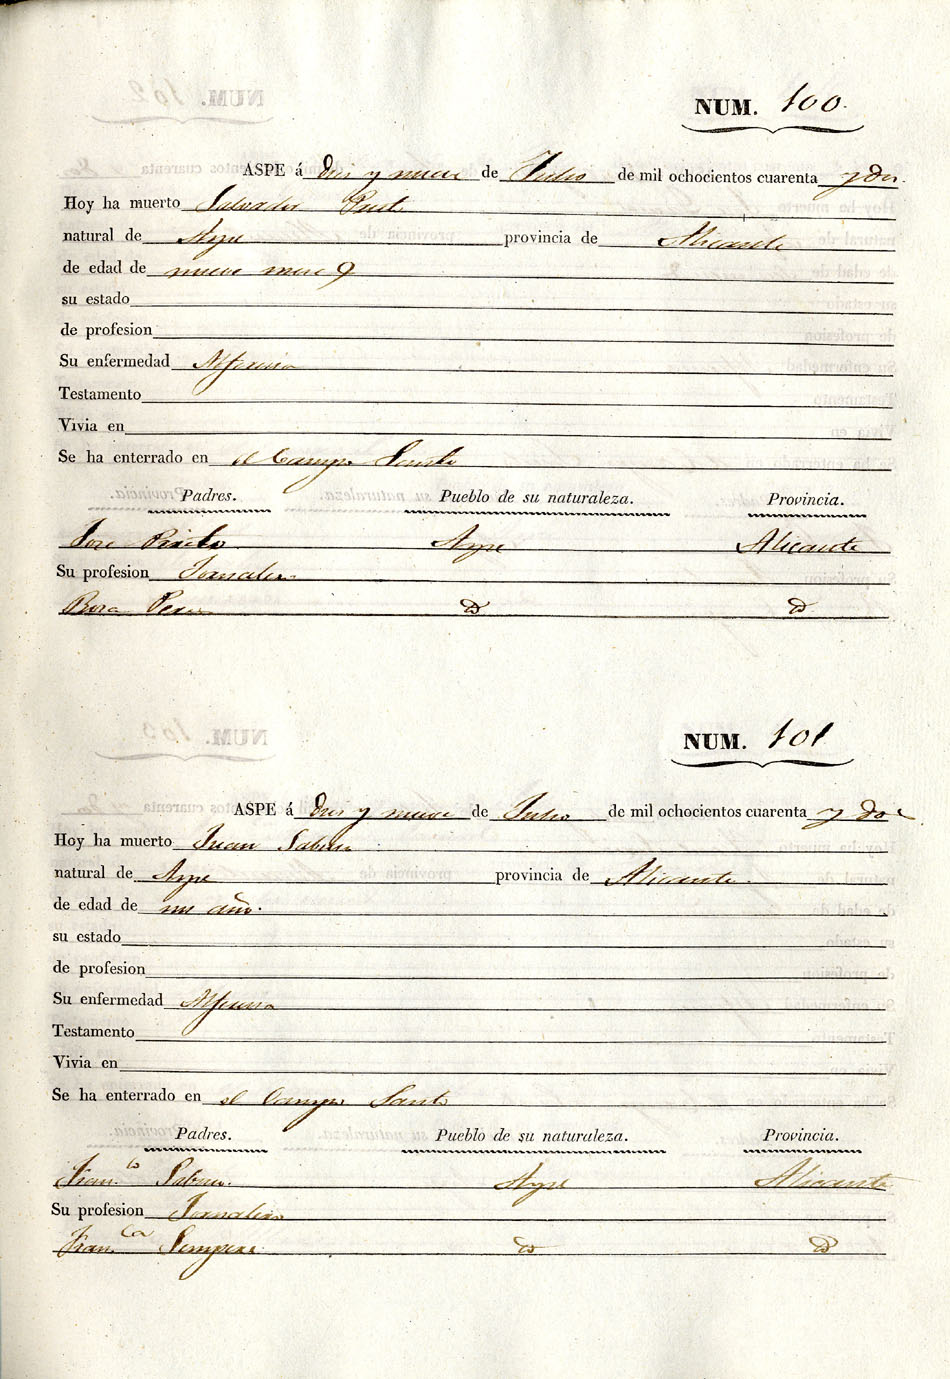 NUM. 100.
ASPE á diez y nueve de Julio de mil ochocientos cuarenta y dos.
Hoy ha muerto Salvador Prieto
natural de Aspe provincia de Alicante
de edad de nueve meses
su estado
de profesion
Su enfermedad
Testamento
Vivia en
Se ha enterrado en el Campo Santo
Padres. Pueblo de su naturaleza. Provincia.
Jose Prieto Aspe Alicante
Su profesion Jornalero
Perez
NUM. 101
ASPE á diez y nueve de Julio de mil ochocientos cuarenta y dos
Hoy ha muerto Juan
natural de Aspe provincia de Alicante.
de edad de un año.
su estado
de profesion
Su enfermedad
Testamento
Vivia en
Se ha enterrado en el Campo Santo
Padres. Pueblo de su naturaleza. Provincia.
Fran.co Aspe Alicante
Su profesion Jornalero
Fran.ca Sempere